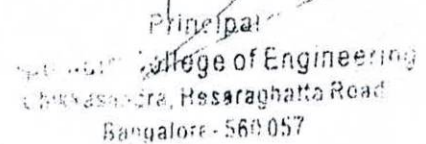 Principal
College of Engineering
Hesaraghatta Road
Bangalore - 560 057